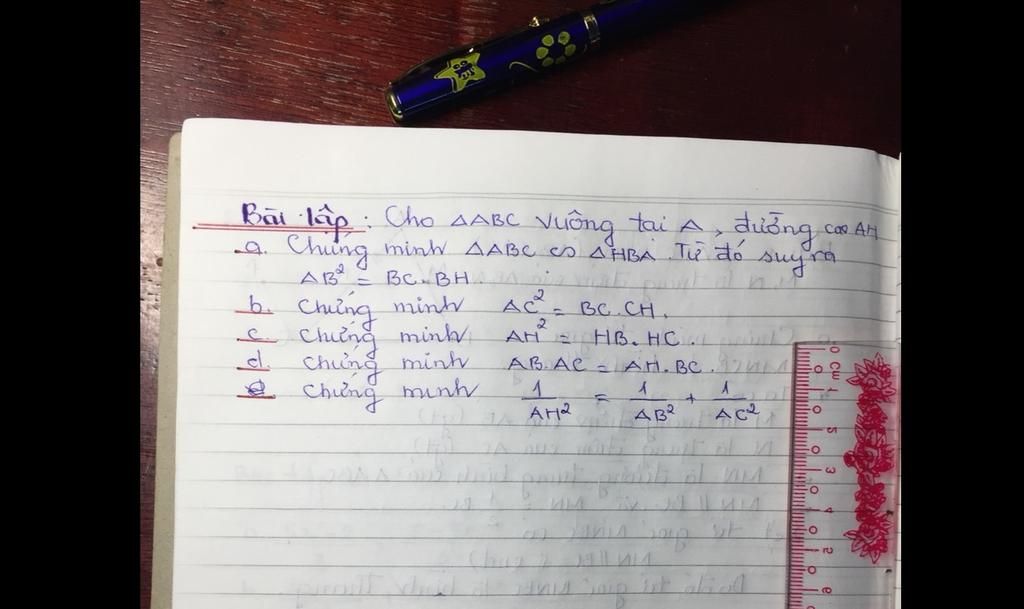 Bài tập : Cho ΔABC vuông tại A, đường cao AH
a. Chứng minh ΔABC ∽ ΔHBA. Từ đó suy ra
AB² = BC.BH.
b. Chứng minh AC² = BC.CH.
c. Chứng minh AH² = HB.HC.
d. Chứng minh AB.AC = AH.BC.
e. Chứng minh 1/AH² = 1/AB² + 1/AC²
0 CM 1 2 3 4 5 6